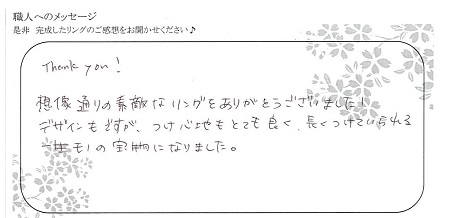 職人へのメッセージ
是非 完成したリングのご感想をお聞かせください♪
Thank you!
想像通りの素敵なリングをありがとうございました!
デザインもですが、つけ心地もとても良く、長くつけていられる
一生モノの宝物になりました。